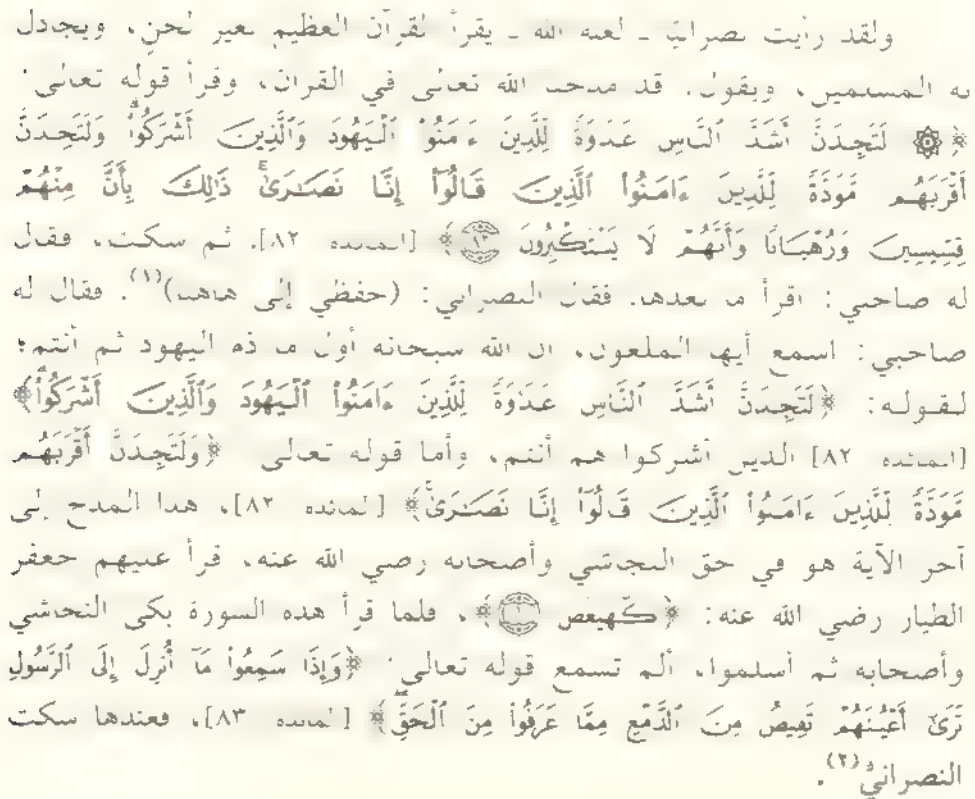 ولقد رأيت نصرانيًا - لعنه الله - يقرأ القرآن العظيم بغير لحن، ويجادل
به المسلمين، ويقول: قد مدحنا الله تعالى في القرآن، وقرأ قوله تعالى:
﴿۞ لَتَجِدَنَّ أَشَدَّ ٱلنَّاسِ عَدَٰوَةً لِّلَّذِينَ ءَامَنُوا۟ ٱلْيَهُودَ وَٱلَّذِينَ أَشْرَكُوا۟ۖ وَلَتَجِدَنَّ
أَقْرَبَهُم مَّوَدَّةً لِّلَّذِينَ ءَامَنُوا۟ ٱلَّذِينَ قَالُوٓا۟ إِنَّا نَصَٰرَىٰۚ ذَٰلِكَ بِأَنَّ مِنْهُمْ
قِسِّيسِينَ وَرُهْبَانًا وَأَنَّهُمْ لَا يَسْتَكْبِرُونَ﴾ [المائدة ٨٢]. ثم سكت، فقال
له صاحبي: اقرأ ما بعدها. فقال النصراني: (حفظي إلى هاهنا)(١). فقال له
صاحبي: اسمع أيها الملعون، إن الله سبحانه أول ما ذم اليهود ثم أنتم؛
لقوله: ﴿لَتَجِدَنَّ أَشَدَّ ٱلنَّاسِ عَدَٰوَةً لِّلَّذِينَ ءَامَنُوا۟ ٱلْيَهُودَ وَٱلَّذِينَ أَشْرَكُوا۟﴾
[المائدة ٨٢] الذين أشركوا هم أنتم، وأما قوله تعالى ﴿وَلَتَجِدَنَّ أَقْرَبَهُم
مَّوَدَّةً لِّلَّذِينَ ءَامَنُوا۟ ٱلَّذِينَ قَالُوٓا۟ إِنَّا نَصَٰرَىٰ﴾ [المائدة ٨٢]، هذا المدح إلى
آخر الآية هو في حق النجاشي وأصحابه رضي الله عنه، قرأ عليهم جعفر
الطيار رضي الله عنه: ﴿كٓهيعٓصٓ ١﴾، فلما قرأ هذه السورة بكى النجاشي
وأصحابه ثم أسلموا، ألم تسمع قوله تعالى: ﴿وَإِذَا سَمِعُوا۟ مَآ أُنزِلَ إِلَى ٱلرَّسُولِ
تَرَىٰٓ أَعْيُنَهُمْ تَفِيضُ مِنَ ٱلدَّمْعِ مِمَّا عَرَفُوا۟ مِنَ ٱلْحَقِّ﴾ [المائدة ٨٣]، فعندها سكت
النصرانيُّ(٢).